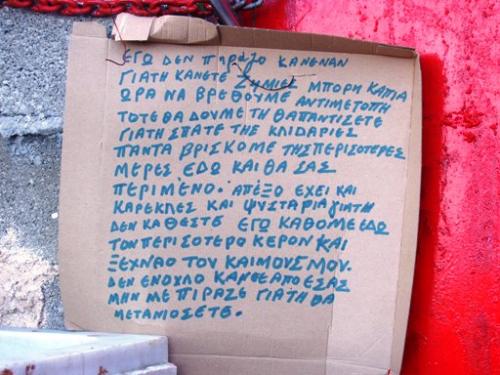 ΕΓΩ ΔΕΝ ΠΙΡΑΖΟ ΚΑΝΕΝΑΝ
ΓΙΑΤΗ ΚΑΝΕΤΕ ΖΗΜΙΕΣ ΜΠΟΡΗ ΚΑΠΙΑ
ΩΡΑ ΝΑ ΒΡΕΘΟΥΜΕ ΑΝΤΙΜΕΤΟΠΗ
ΤΟΤΕ ΘΑ ΔΟΥΜΕ ΤΗ ΘΑ ΠΑΝΤΙΣΕΤΕ
ΓΙΑΤΗ ΣΠΑΤΕ ΤΗΣ ΚΛΙΔΑΡΙΕΣ
ΠΑΝΤΑ ΒΡΙΣΚΟΜΕ ΤΗΣ ΠΕΡΙΣΟΤΕΡΕΣ
ΜΕΡΕΣ ΕΔΩ ΚΑΙ ΘΑ ΣΑΣ
ΠΕΡΙΜΕΝΟ. ΑΠΕΞΟ ΕΧΕΙ ΚΑΙ
ΚΑΡΕΚΛΕΣ ΚΑΙ ΨΥΣΤΑΡΙΑ ΓΙΑΤΗ
ΔΕΝ ΚΑΘΕΣΤΕ ΕΓΩ ΚΑΘΟΜΕ ΕΔΩ
ΤΟΝ ΠΕΡΙΣΟΤΕΡΟ ΚΕΡΟΝ ΚΑΙ
ΞΕΧΝΑΟ ΤΟΥ ΚΑΙΜΟΥΣ ΜΟΥ.
ΔΕΝ ΕΝΟΧΛΟ ΚΑΝΕΑ ΑΠΟ ΕΣΑΣ
ΜΗΝ ΜΕ ΠΙΡΑΖΕ ΓΙΑΤΗ ΘΑ
ΜΕΤΑΝΙΟΣΕΤΕ.